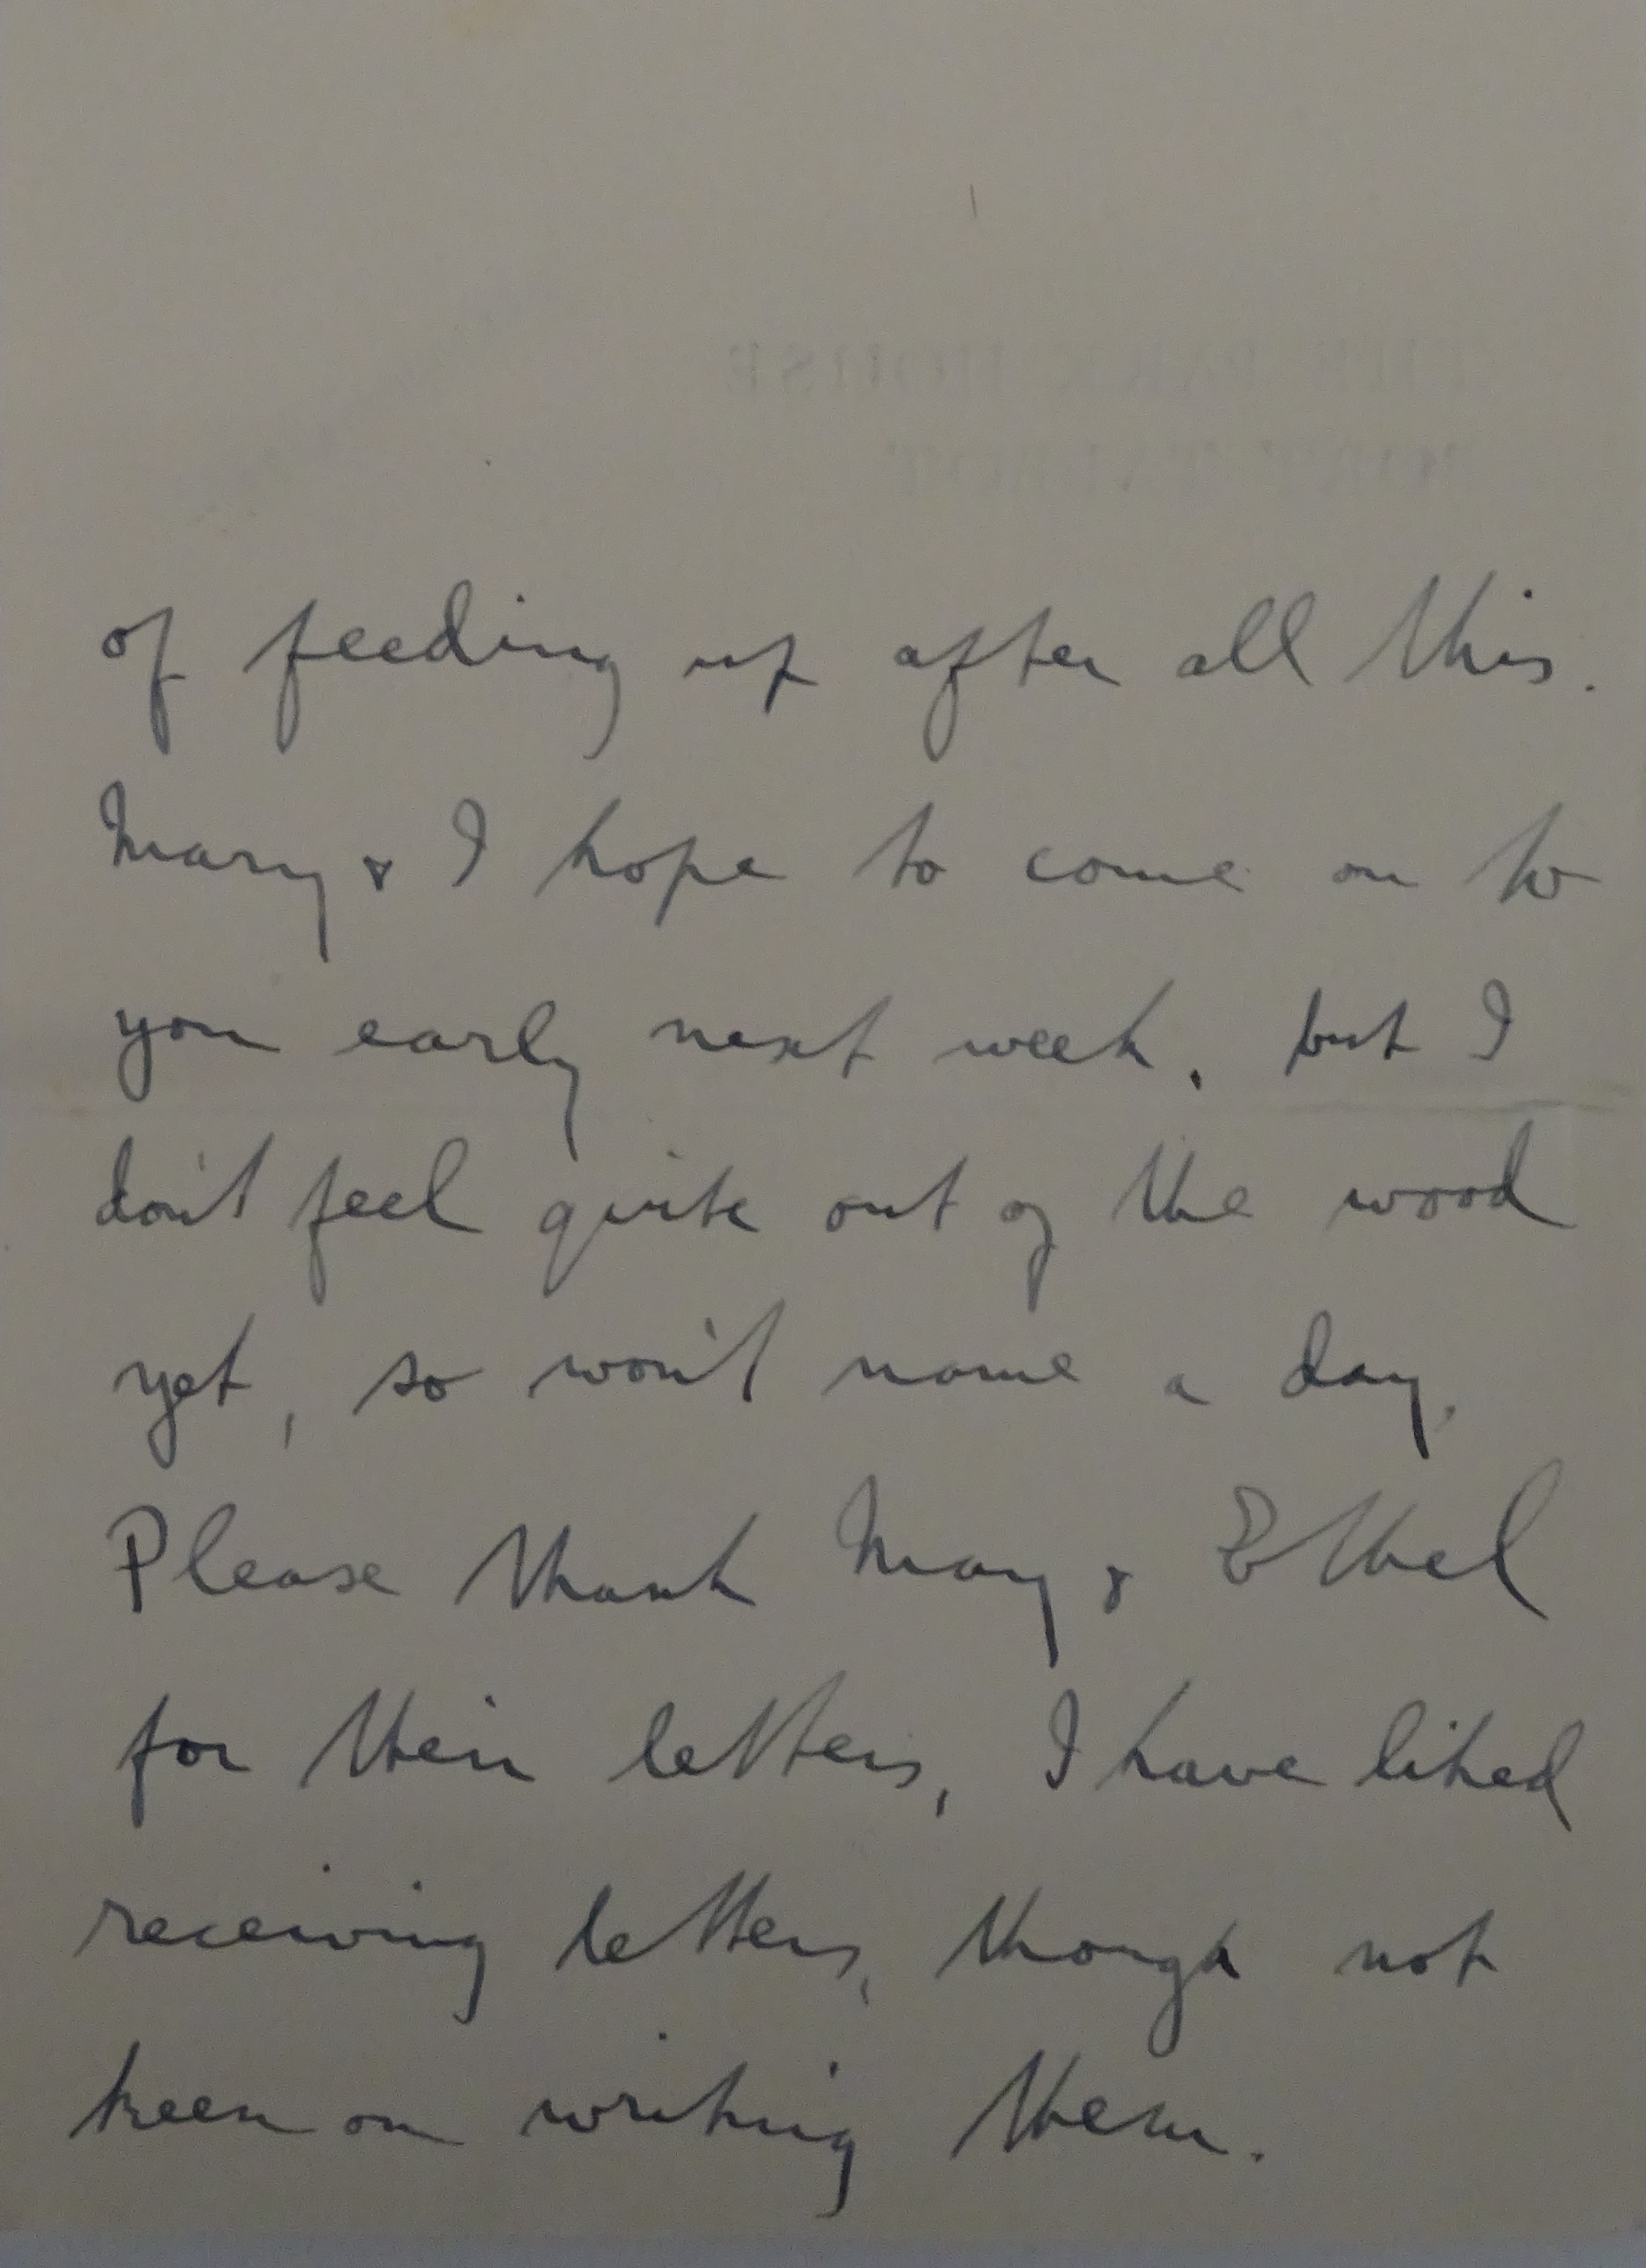 THE PARK HOUSE
PORT TALBOT
of feeding up after all this.
Mary & I hope to come on to
you early next week, but I
don't feel quite out of the wood
yet, so won't name a day.
Please thank May & Ethel
for their letters, I have liked
receiving letters, though not
keen on writing them.